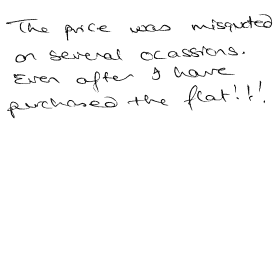 The price was misquoted
on several ocassions.
Even after I have
purchased the flat!!!.